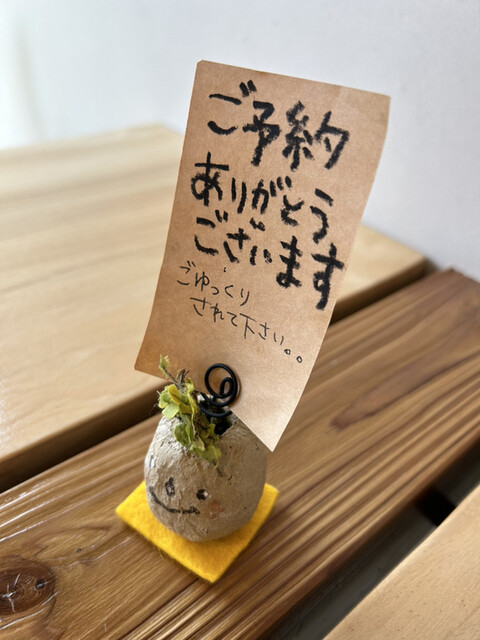 ご予約
ありがとう
ございます
ごゆっくり
されて下さい。。